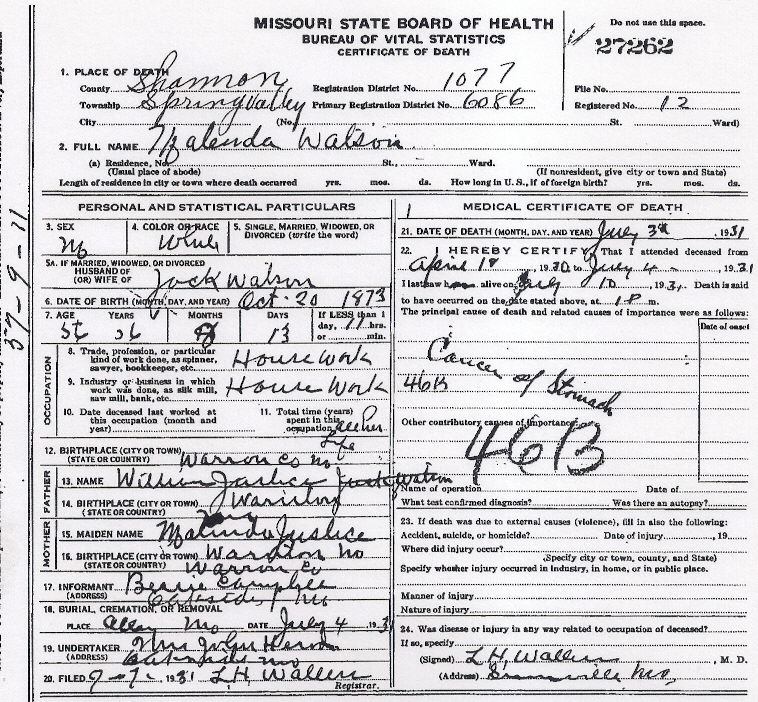 MISSOURI STATE BOARD OF HEALTH
BUREAU OF VITAL STATISTICS
CERTIFICATE OF DEATH
Do not use this space.
27262
1. PLACE OF DEATH
County Shannon Registration District No. 1077 File No.
Township Spring Valley Primary Registration District No. 6086 Registered No. 12
City (No. St. Ward)
2. FULL NAME Malenda Watson
(a) Residence, No. St., Ward.
(Usual place of abode) (If nonresident, give city or town and State)
Length of residence in city or town where death occurred yrs. mos. ds. How long in U. S., if of foreign birth? yrs. mos. ds.
PERSONAL AND STATISTICAL PARTICULARS
3. SEX
4. COLOR OR RACE White
5. SINGLE, MARRIED, WIDOWED, OR DIVORCED (write the word)
5A. IF MARRIED, WIDOWED, OR DIVORCED
HUSBAND OF
(OR) WIFE OF Jack Watson
6. DATE OF BIRTH (MONTH, DAY, AND YEAR) Oct-20 1873
7. AGE YEARS MONTHS DAYS If LESS than 1
day, hrs.
or min.
13
OCCUPATION
8. Trade, profession, or particular
kind of work done, as spinner,
sawyer, bookkeeper, etc. House Work
9. Industry or business in which
work was done, as silk mill,
saw mill, bank, etc. House Work
10. Date deceased last worked at
this occupation (month and
year)
11. Total time (years)
spent in this
occupation all her
Life
12. BIRTHPLACE (CITY OR TOWN)
(STATE OR COUNTRY) Warron Co Mo
FATHER
13. NAME Justice
14. BIRTHPLACE (CITY OR TOWN)
(STATE OR COUNTRY)
MOTHER
15. MAIDEN NAME Malinda Justice
16. BIRTHPLACE (CITY OR TOWN) Mo
(STATE OR COUNTRY) Warron Co
17. INFORMANT Campbell
(ADDRESS) Mo
18. BURIAL, CREMATION, OR REMOVAL
PLACE Mo DATE July 4, 1931
19. UNDERTAKER Mrs John
(ADDRESS) Mo
20. FILED 7-7-, 1931 L. H. Wallen
Registrar.
MEDICAL CERTIFICATE OF DEATH
21. DATE OF DEATH (MONTH, DAY, AND YEAR) July 3rd, 1931
22. I HEREBY CERTIFY, That I attended deceased from
April 18, 1930 to July 4, 1931
I last saw h alive on July, 1931. Death is said
to have occurred on the date stated above, at m.
The principal cause of death and related causes of importance were as follows:
Date of onset
Cancer of Stomach
46B
Other contributory causes of importance:
46B
Name of operation Date of
What test confirmed diagnosis? Was there an autopsy?
23. If death was due to external causes (violence), fill in also the following:
Accident, suicide, or homicide? Date of injury, 19
Where did injury occur?
(Specify city or town, county, and State)
Specify whether injury occurred in industry, in home, or in public place.
Manner of injury
Nature of injury
24. Was disease or injury in any way related to occupation of deceased?
If so, specify
(Signed) L. H. Wallen, M. D.
(Address) Mo.
57-9-11